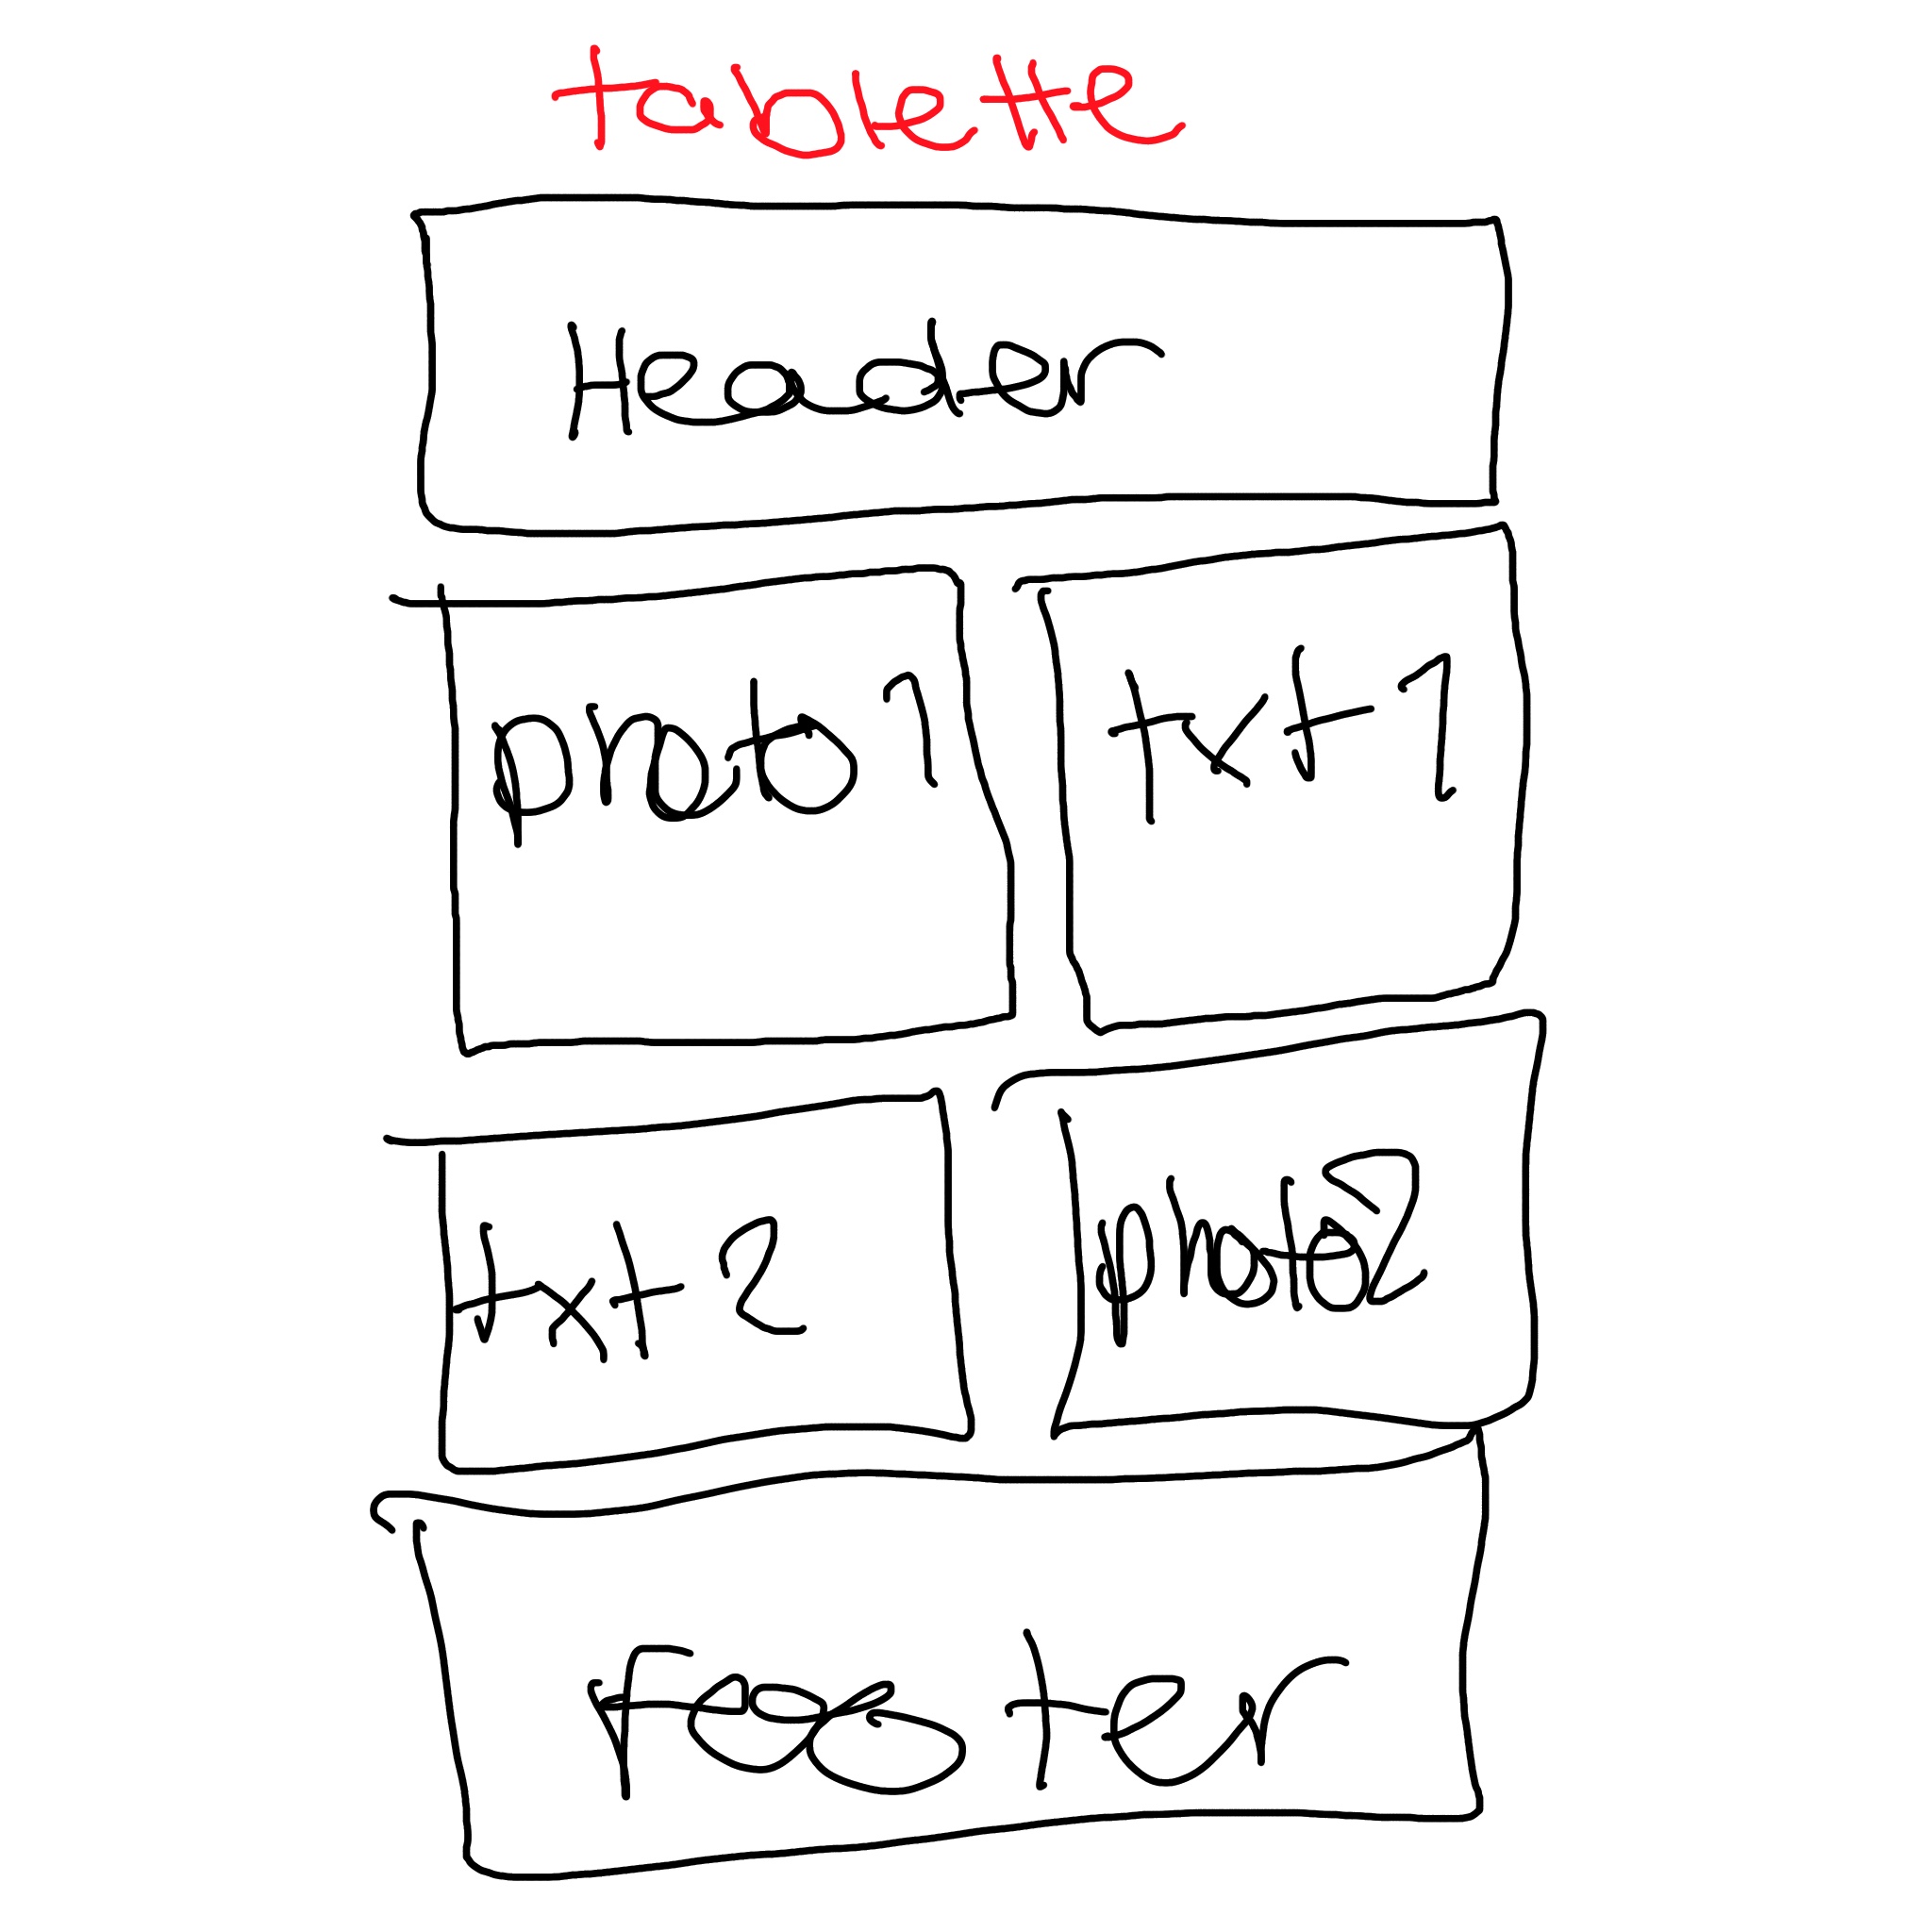 tablette
Header
photo 1
txt 1
txt 2
photo 2
Footer